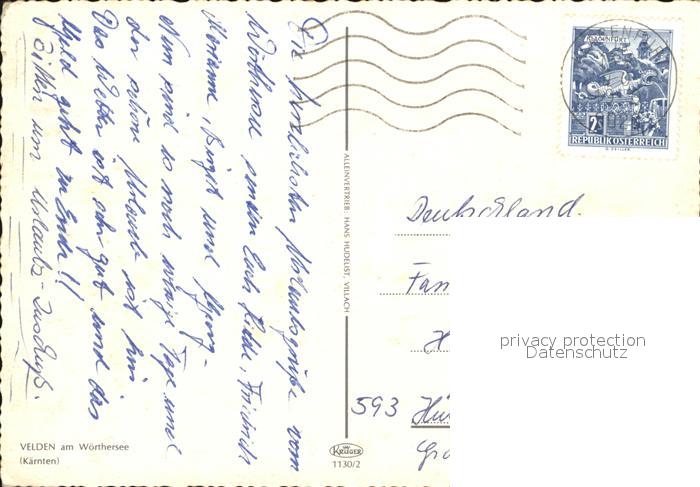 Die herzlichsten Urlaubsgrüße vom
Wörthersee senden Euch Friedrich
Marianne, Birgit und Georg.
Nun sind es noch wenige Tage und
der schöne Urlaub ist hin.
Das Wetter ist sehr gut und das
Geld geht zu Ende!!
Bitten um Urlaubs-Zuschuß.
VELDEN am Wörthersee
(Kärnten)
ALLEINVERTRIEB: HANS HUDELIST, VILLACH
KRUGER
1130/2
KLAGENFURT
2
REPUBLIK ÖSTERREICH
Deutschland
Fam
593 Hü
privacy protection
Datenschutz